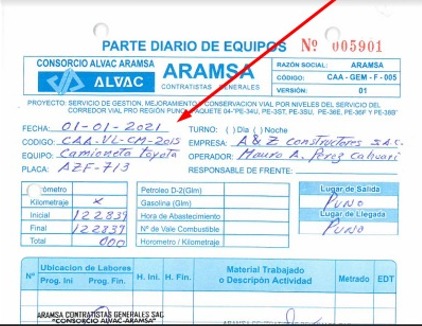 PARTE DIARIO DE EQUIPOS Nº 005901
CONSORCIO ALVAC ARAMSA
ALVAC
ARAMSA
CONTRATISTAS GENERALES
RAZÓN SOCIAL: ARAMSA
CÓDIGO: CAA - GEM - F - 005
VERSIÓN: 01
PROYECTO: SERVICIO DE GESTION, MEJORAMIENTO Y CONSERVACION VIAL POR NIVELES DE SERVICIO DEL
CORREDOR VIAL PRO REGIÓN PUNO PAQUETE 04-"PE-34U, PE-3ST, PE-3SU, PE-36E, PE-36F Y PE-38B"
FECHA: 01-01-2021 TURNO: ( ) Día ( ) Noche
CODIGO: CAA-VL-CM-2015 EMPRESA: A&Z Constructores S.A.C.
EQUIPO: Camioneta toyota OPERADOR: Mauro A. Perez Calivari
PLACA: AZF-713 RESPONSABLE DE FRENTE:
Horómetro
Kilometraje x
Inicial 122839
Final 122839
Total 000
Petroleo D-2(Glm)
Gasolina (Glm)
Hora de Abastecimiento
Nº de Vale Combustible
Horometro / Kilometraje
Lugar de Salida
PUNO
Lugar de Llegada
PUNO
Nº Ubicacion de Labores H. Ini. H. Fin. Material Trabajado Metrado EDT
Prog. Ini Prog. Fin o Descripón Actividad
ARAMSA CONTRATISTAS GENERALES SAC
"CONSORCIO ALVAC-ARAMSA"